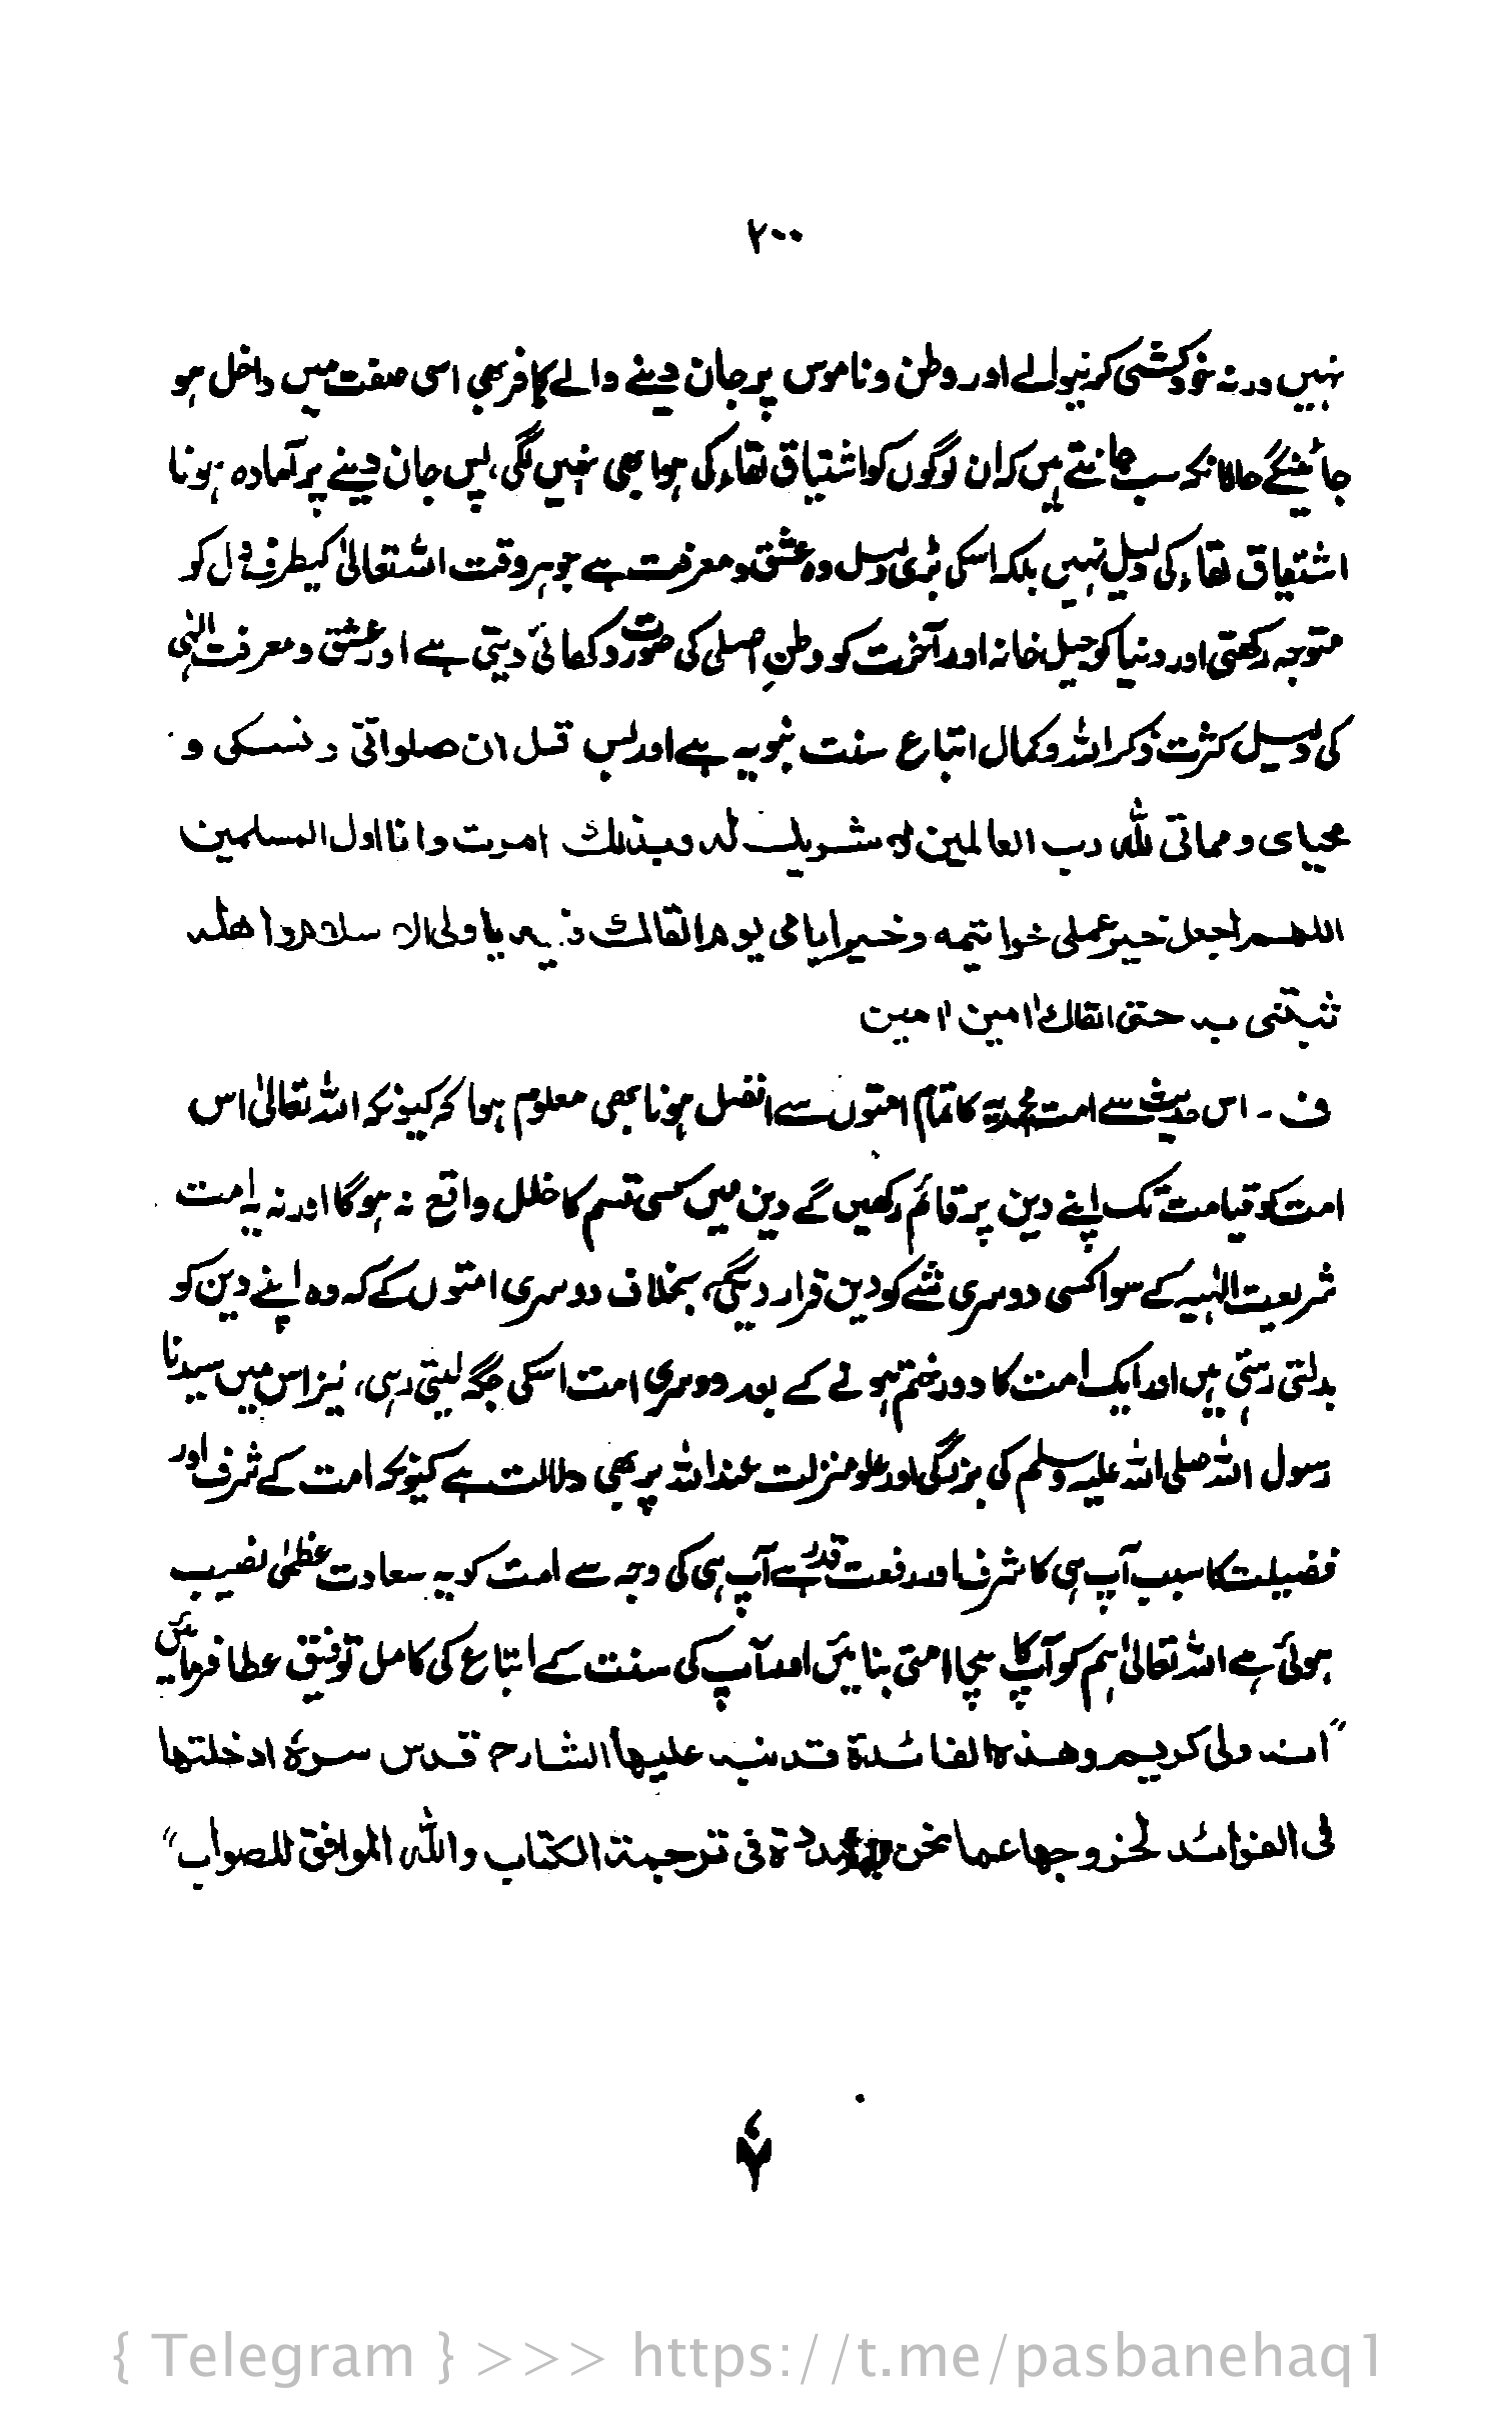 ۲۰۰
نہیں ورنہ خودکشی کرنیوالے اور وطن و ناموس پر جان دینے والے کافر بھی اسی صفت میں داخل ہو
جائینگے حالانکہ سب جانتے ہیں کہ ان لوگوں کو اشتیاق لقاء کی ہوا بھی نہیں لگی، پس جان دینے پر آمادہ ہونا
اشتیاق لقاء کی دلیل نہیں بلکہ اسکی بڑی دلیل وہ عشق و معرفت ہے جو ہر وقت اللہ تعالیٰ کیطرف دل کو
متوجہ رکھتی اور دنیا کو جیل خانہ اور آخرت کو وطنِ اصلی کی صورت دکھائی دیتی ہے اور عشق و معرفت الٰہی
کی دلیل کثرت ذکر اللہ و کمال اتباع سنت نبویہ ہے اور بس قل ان صلواتی و نسکی و
محیای و مماتی للہ رب العالمین لا شریک لہ وبذلک امرت وانا اول المسلمین
اللھم اجعل خیر عملی خواتیمہ وخیر ایامی یوم القاک فیہ یا ولی الاسلام واھلہ
ثبتنی بہ حتی القاک اٰمین اٰمین
ف ۔ اس حدیث سے امت محمدیہ کا تمام امتوں سے افضل ہونا بھی معلوم ہوا کہ کیونکہ اللہ تعالیٰ اس
امت کو قیامت تک اپنے دین پر قائم رکھیں گے دین میں کسی قسم کا خلل واقع نہ ہوگا اور نہ یہ امت
شریعت الٰہیہ کے سوا کسی دوسری شے کو دین قرار دیگی، بخلاف دوسری امتوں کے کہ وہ اپنے دین کو
بدلتی رہتی ہیں اور ایک امت کا دور ختم ہونے کے بعد دوسری امت اسکی جگہ لیتی رہی، نیز اس میں سیدنا
رسول اللہ صلی اللہ علیہ وسلم کی بزرگی اور علو منزلت عنداللہ پر بھی دلالت ہے کیونکہ امت کے شرف اور
فضیلت کا سبب آپ ہی کا شرف اور رفعت قدر ہے آپ ہی کی وجہ سے امت کو یہ سعادت عظمیٰ نصیب
ہوئی ہے اللہ تعالیٰ ہم کو آپ کا سچا امتی بنائیں اور آپ کی سنت کے اتباع کی کامل توفیق عطا فرمائیں
"انہ ولی کریم وھذہ الفائدۃ قد نبہ علیھا الشارح قدس سرہٗ ادخلتھا
فی الفوائد لخروجھا عما نحن بصددۃ فی ترجمۃ الکتاب واللہ الموافق للصواب"
{ Telegram } >>> https://t.me/pasbanehaq1